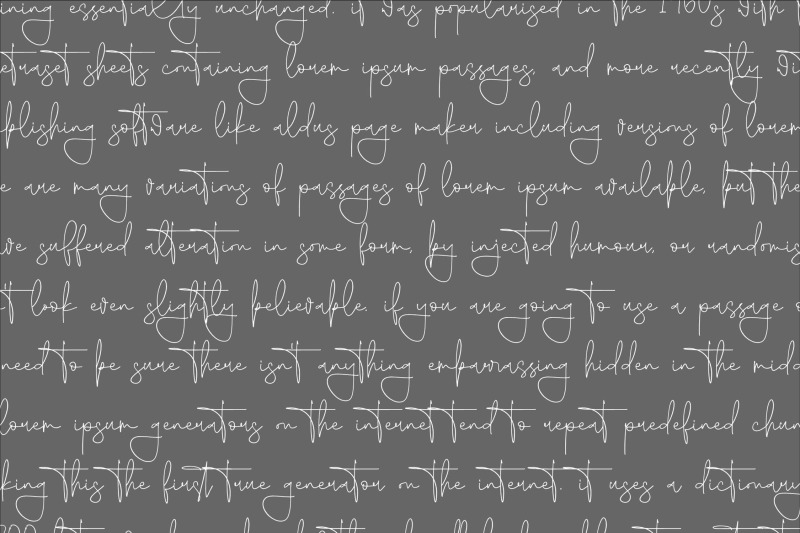 ining essentially unchanged. it was popularised in the 1960s with
etraset sheets containing lorem ipsum passages, and more recently wi
blishing software like aldus page maker including versions of lorem
e are many variations of passages of lorem ipsum available, but the
ve suffered alteration in some form, by injected humour, or randomis
t look even slightly believable. if you are going to use a passage o
need to be sure there isn't anything embarrassing hidden in the midd
lorem ipsum generators on the internet tend to repeat predefined chun
king this the first true generator on the internet. it uses a dictionary